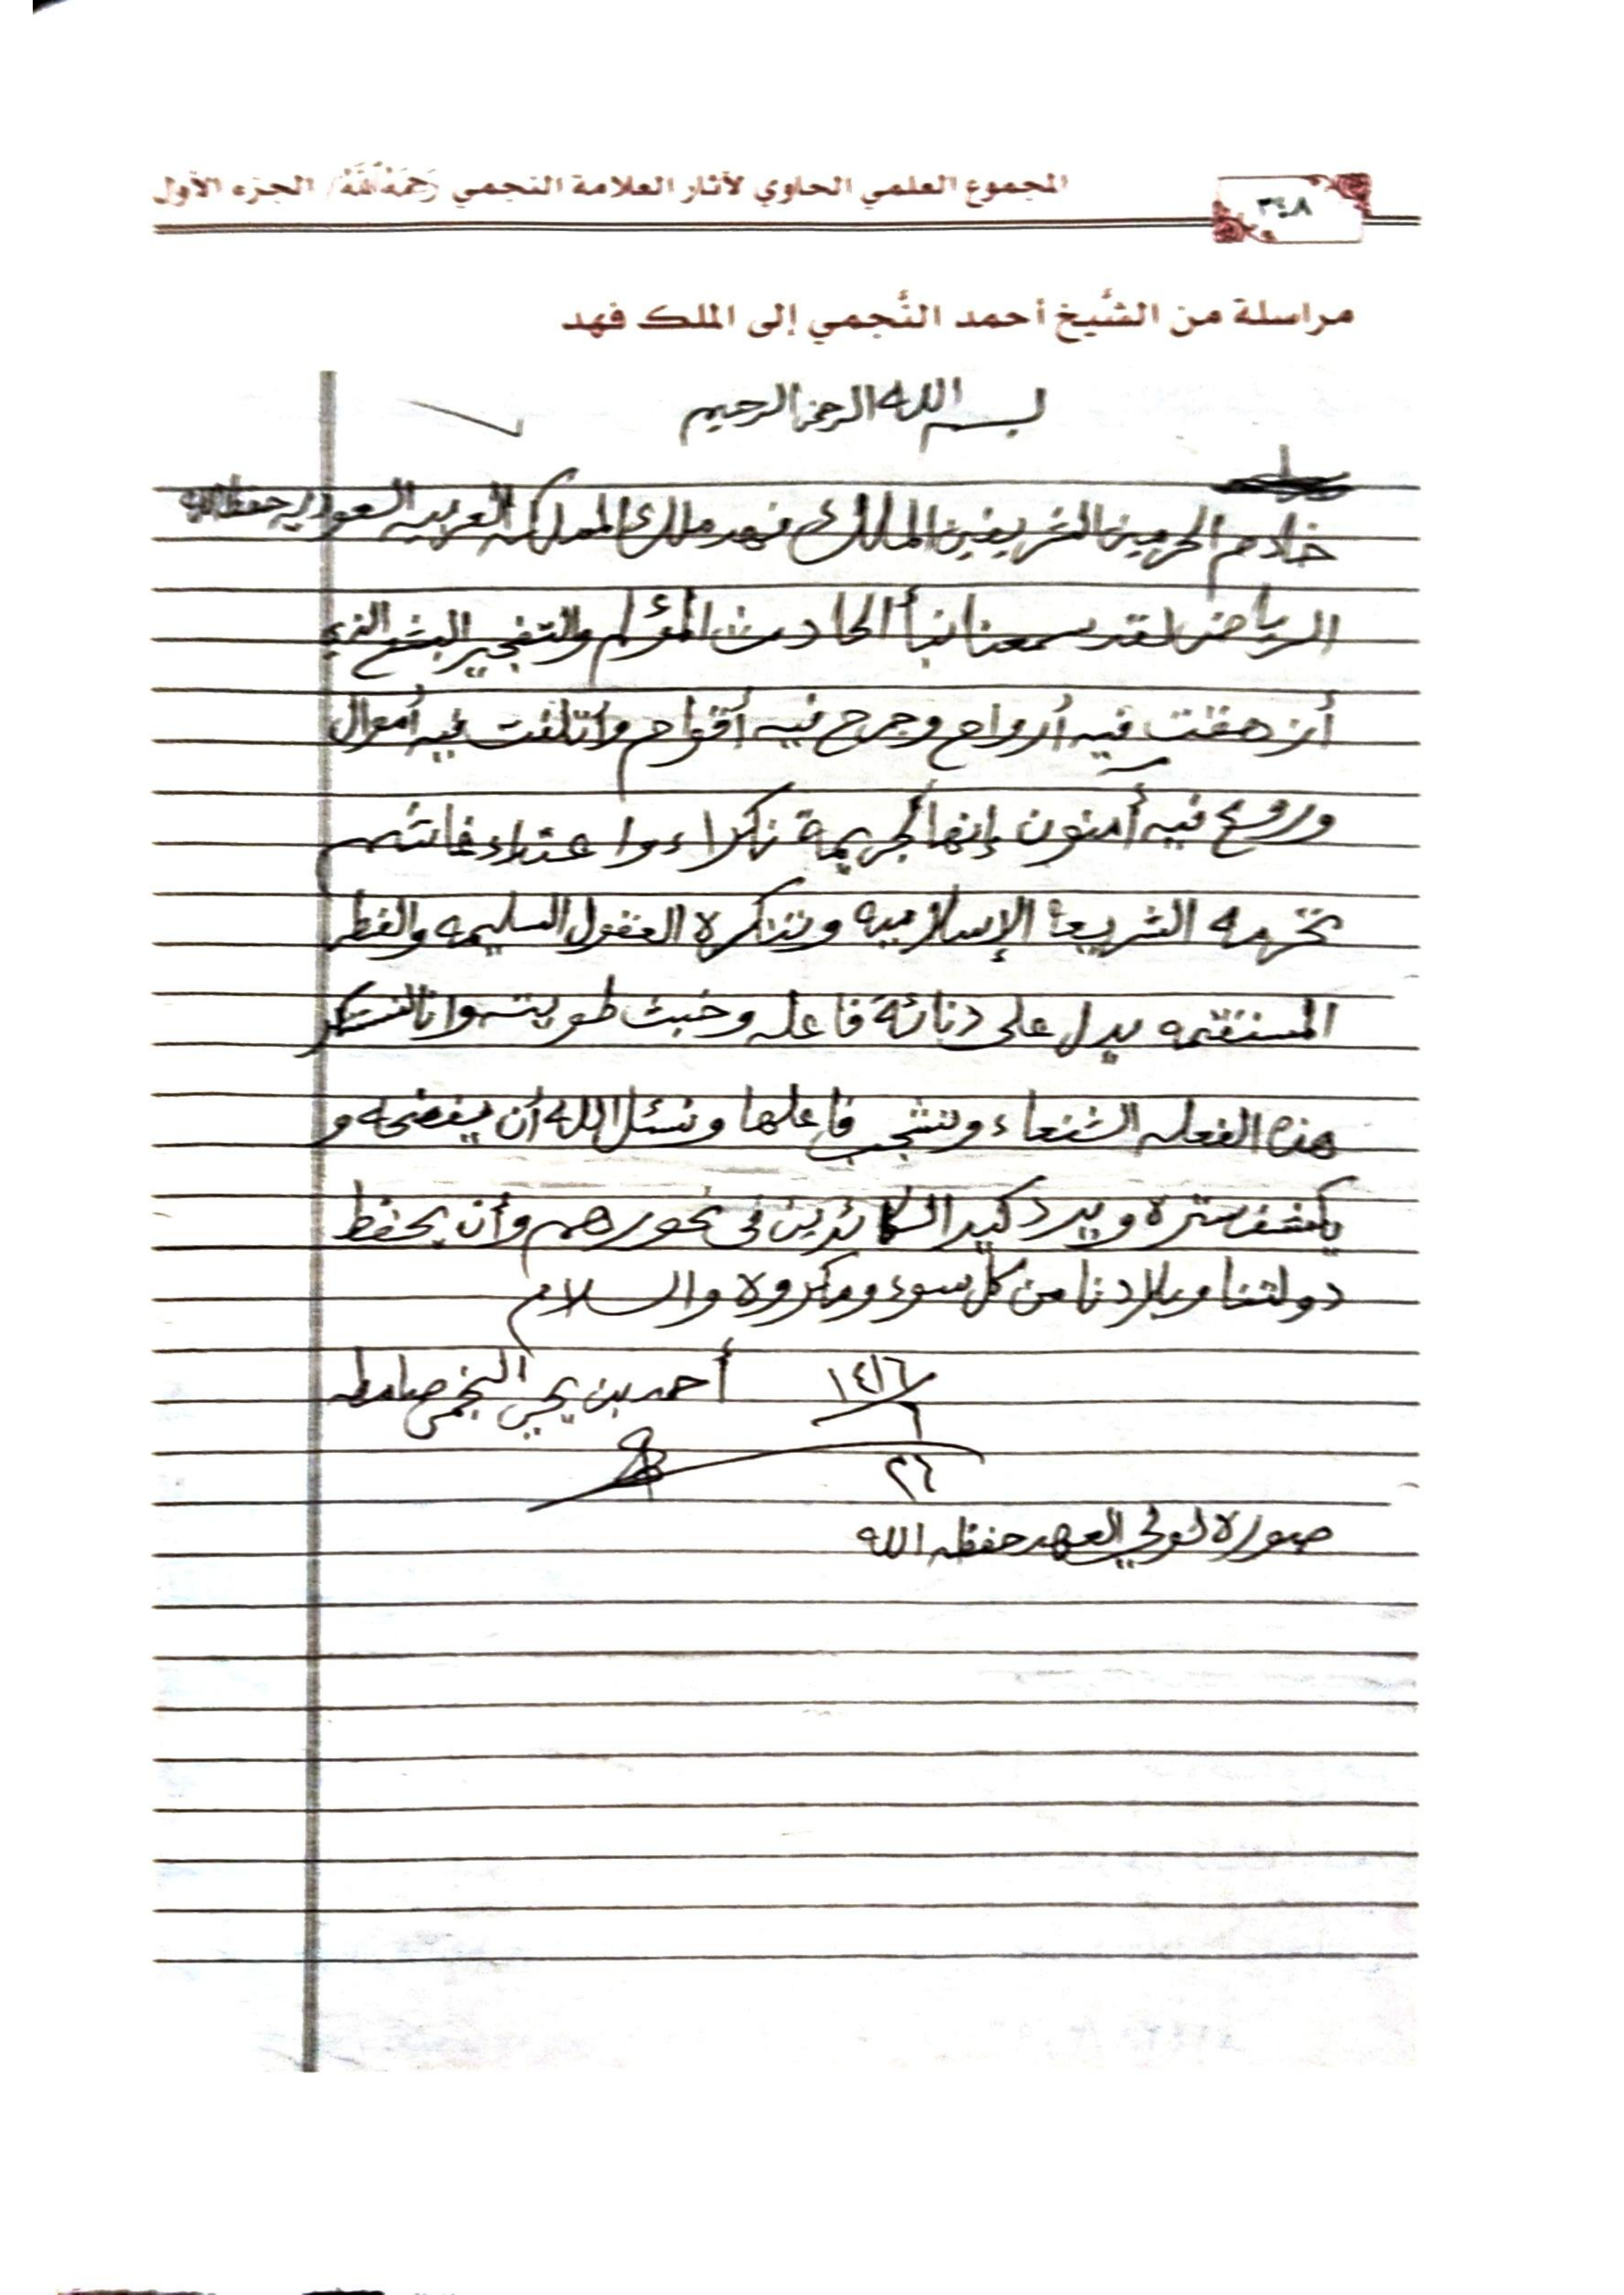 المجموع العلمي الحاوي لآثار العلامة النجمي رَحِمَهُ اللَّهُ / الجزء الأول
٣٤٨
مراسلة من الشَّيخ أحمد النَّجمي إلى الملك فهد
بسم الله الرحمن الرحيم
خادم الحرمين الشريفين الملك فهد ملك المملكه العربيه السعوديه حفظه الله
الرياض لقد سمعنا نبأ الحادث المؤلم والتفجير البشع الذي
أزهقت فيه أرواح وجرح فيه أقوام وأتلفت فيه أموال
وروع فيه آمنون إنها لجريمة نكراء واعتداء غاشم
تحرمه الشريعة الإسلاميه وتنكره العقول السليمه والفطر
المستقيمه يدل على دنائة فاعله وخبث طويته وانا لنستنكر
هذه الفعله الشنعاء ونشجب فاعلها ونسئل الله أن يفضحه و
يكشف ستره ويرد كيد الكائدين في نحورهم وأن يحفظ
دولتنا وبلادنا من كل سوء ومكروه والسلام
١٤١٦ أحمد بن يحيى النجمي صامطه
٦
٢٦
صوره لولي العهد حفظه الله